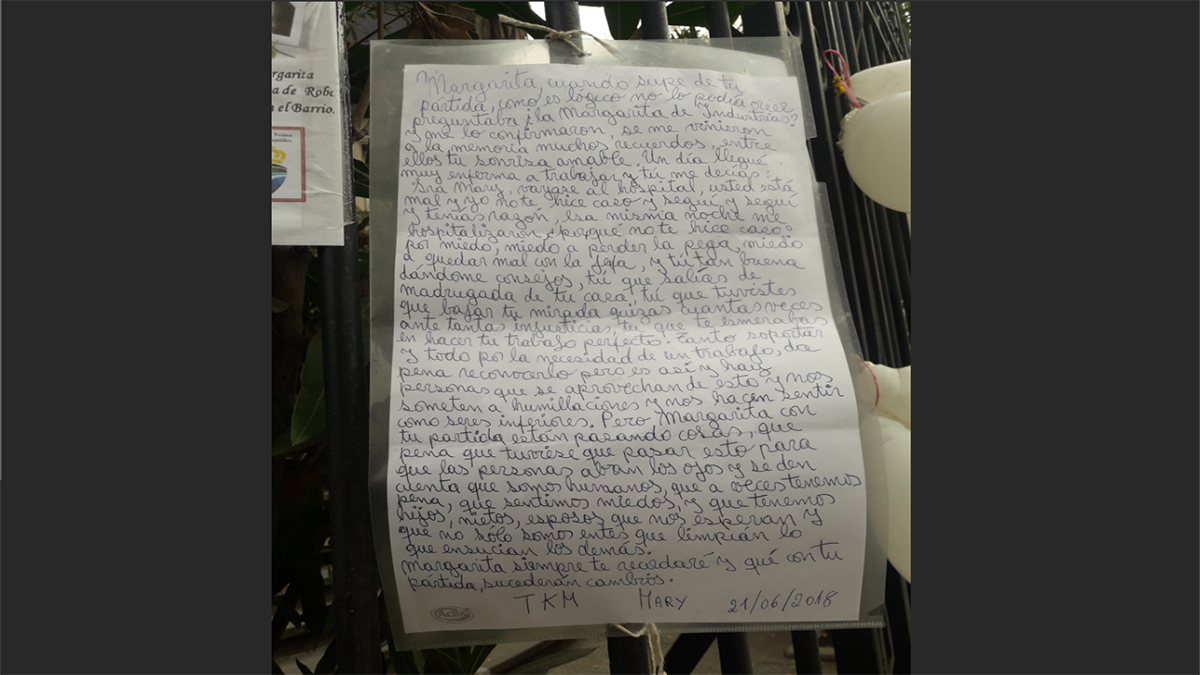 rgarita
a de Robe
n el Barrio.
Margarita, cuando supe de tu
partida, como es lógico no lo podía creer
preguntaba ¿la Margarita de Industrias?
y me lo confirmaron, se me vinieron
a la memoria muchos recuerdos, entre
ellos tu sonrisa amable. Un día llegué
muy enferma a trabajar y tú me decías:
Sra Mary, vayase al hospital, usted está
mal y yo no te hice caso y seguí y seguí
y tenías razón, esa misma noche me
hospitalizaron, ¿porqué no te hice caso?
por miedo, miedo a perder la pega, miedo
a quedar mal con la jefa, y tú tan buena
dándome consejos, tú que salías de
madrugada de tu casa, tú que tuvistes
que bajar tu mirada quizás cuantas veces
ante tantas injusticias, tú que te esmerabas
en hacer tu trabajo perfecto. Tanto soportar
y todo por la necesidad de un trabajo, da
pena reconocerlo pero es así y hay
personas que se aprovechan de esto y nos
someten a humillaciones y nos hacen sentir
como seres inferiores. Pero Margarita con
tu partida están pasando cosas, que
pena que tuviese que pasar esto para
que las personas abran los ojos y se den
cuenta que somos humanos, que a veces tenemos
pena, que sentimos miedos, y que tenemos
hijos, nietos, esposos que nos esperan y
que no sólo somos entes que limpián lo
que ensucian los demás.
Margarita siempre te recordaré y qué con tu
partida, sucederán cambios.
TKM MARY 21/06/2018